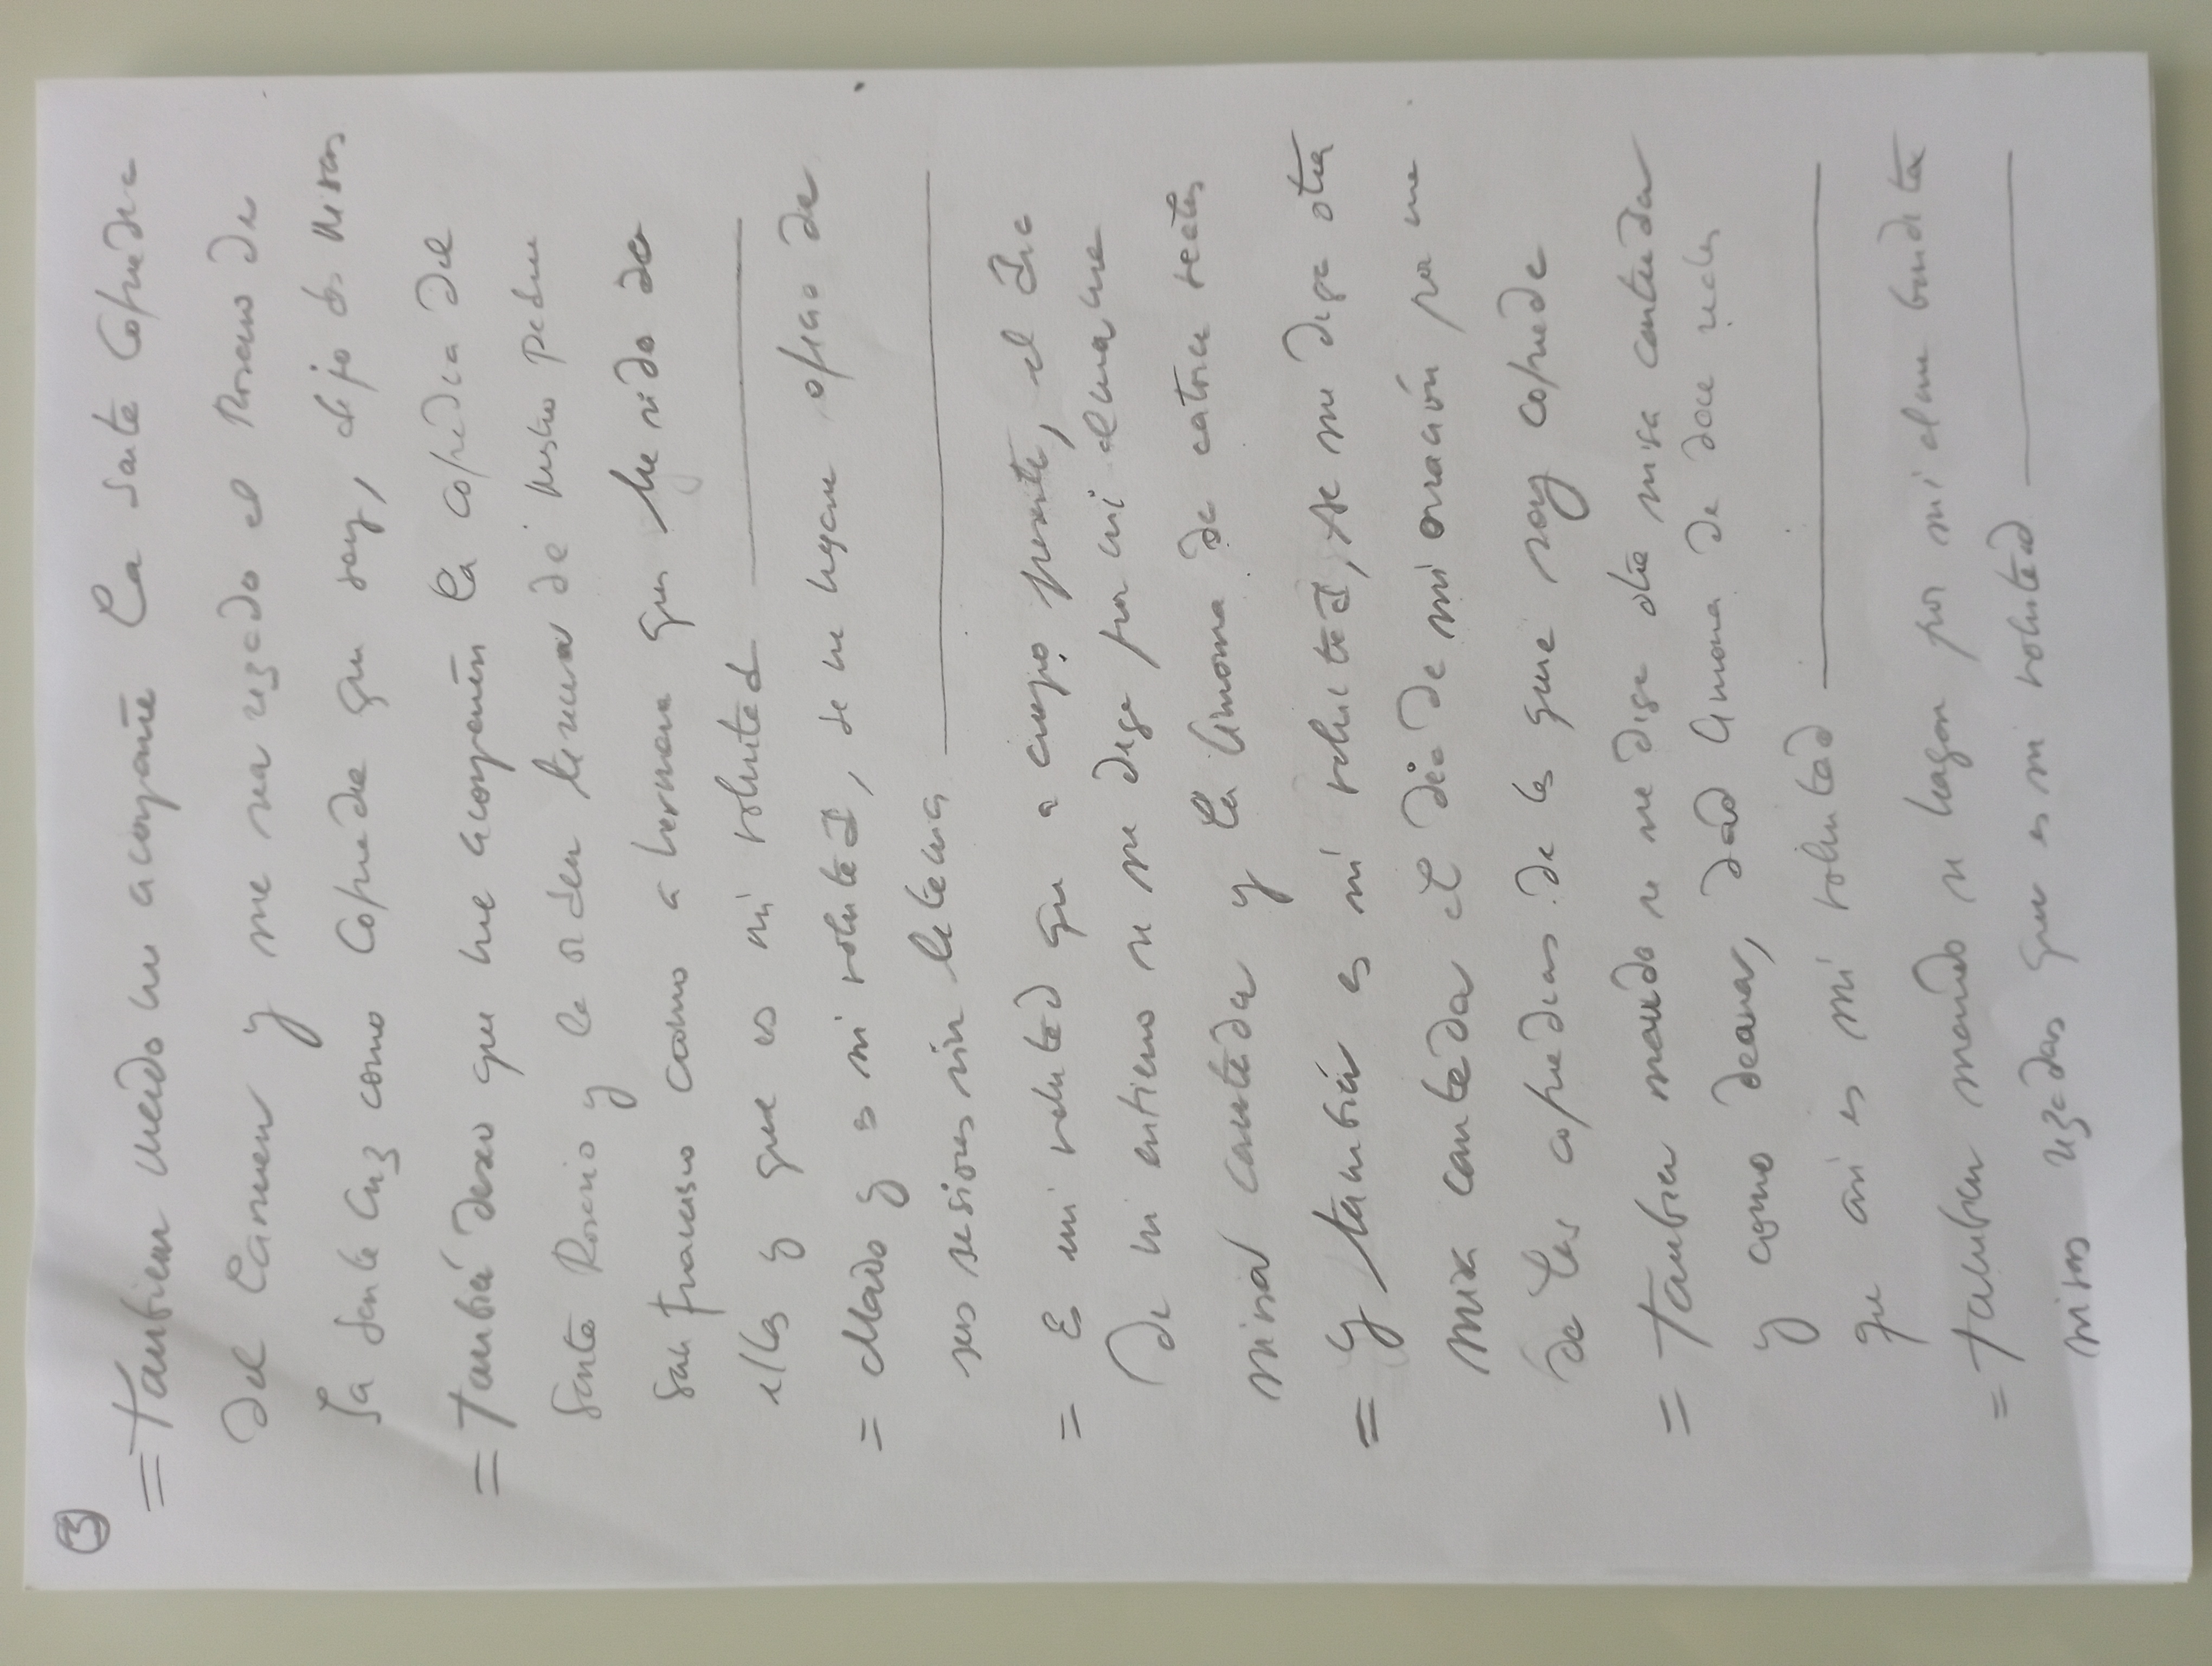 ③
= Tambien mando me acompañe la Santa Cofradia
del Carmen y me sea rezado el Rosario de
la Santa Cruz como Cofrade que soy, dejo dos misas
= También deseo que me acompañen la cofradia del
Santo Rosario y la orden tercera de nuestro padre
San Francisco como a hermana que he sido de
ellas y que es mi voluntad
= Mando y es mi voluntad, se me hagan oficio de
sus sesiones sin letania
= Es mi voluntad que a cuerpo presente, el dia
de mi entierro se me diga por mi alma una
misa cantada y la limosna de catorce reales
= Y también es mi voluntad, se me diga otra
misa cantada el día de mi oración por una
de las cofradias de las que soy cofrade
= Tambien mando se me diga otra misa cantada
y como deana, dad limosna de doce reales
que asi es mi voluntad
= Tambien mando se hagan por mi alma bendita
misas rezadas que es mi voluntad